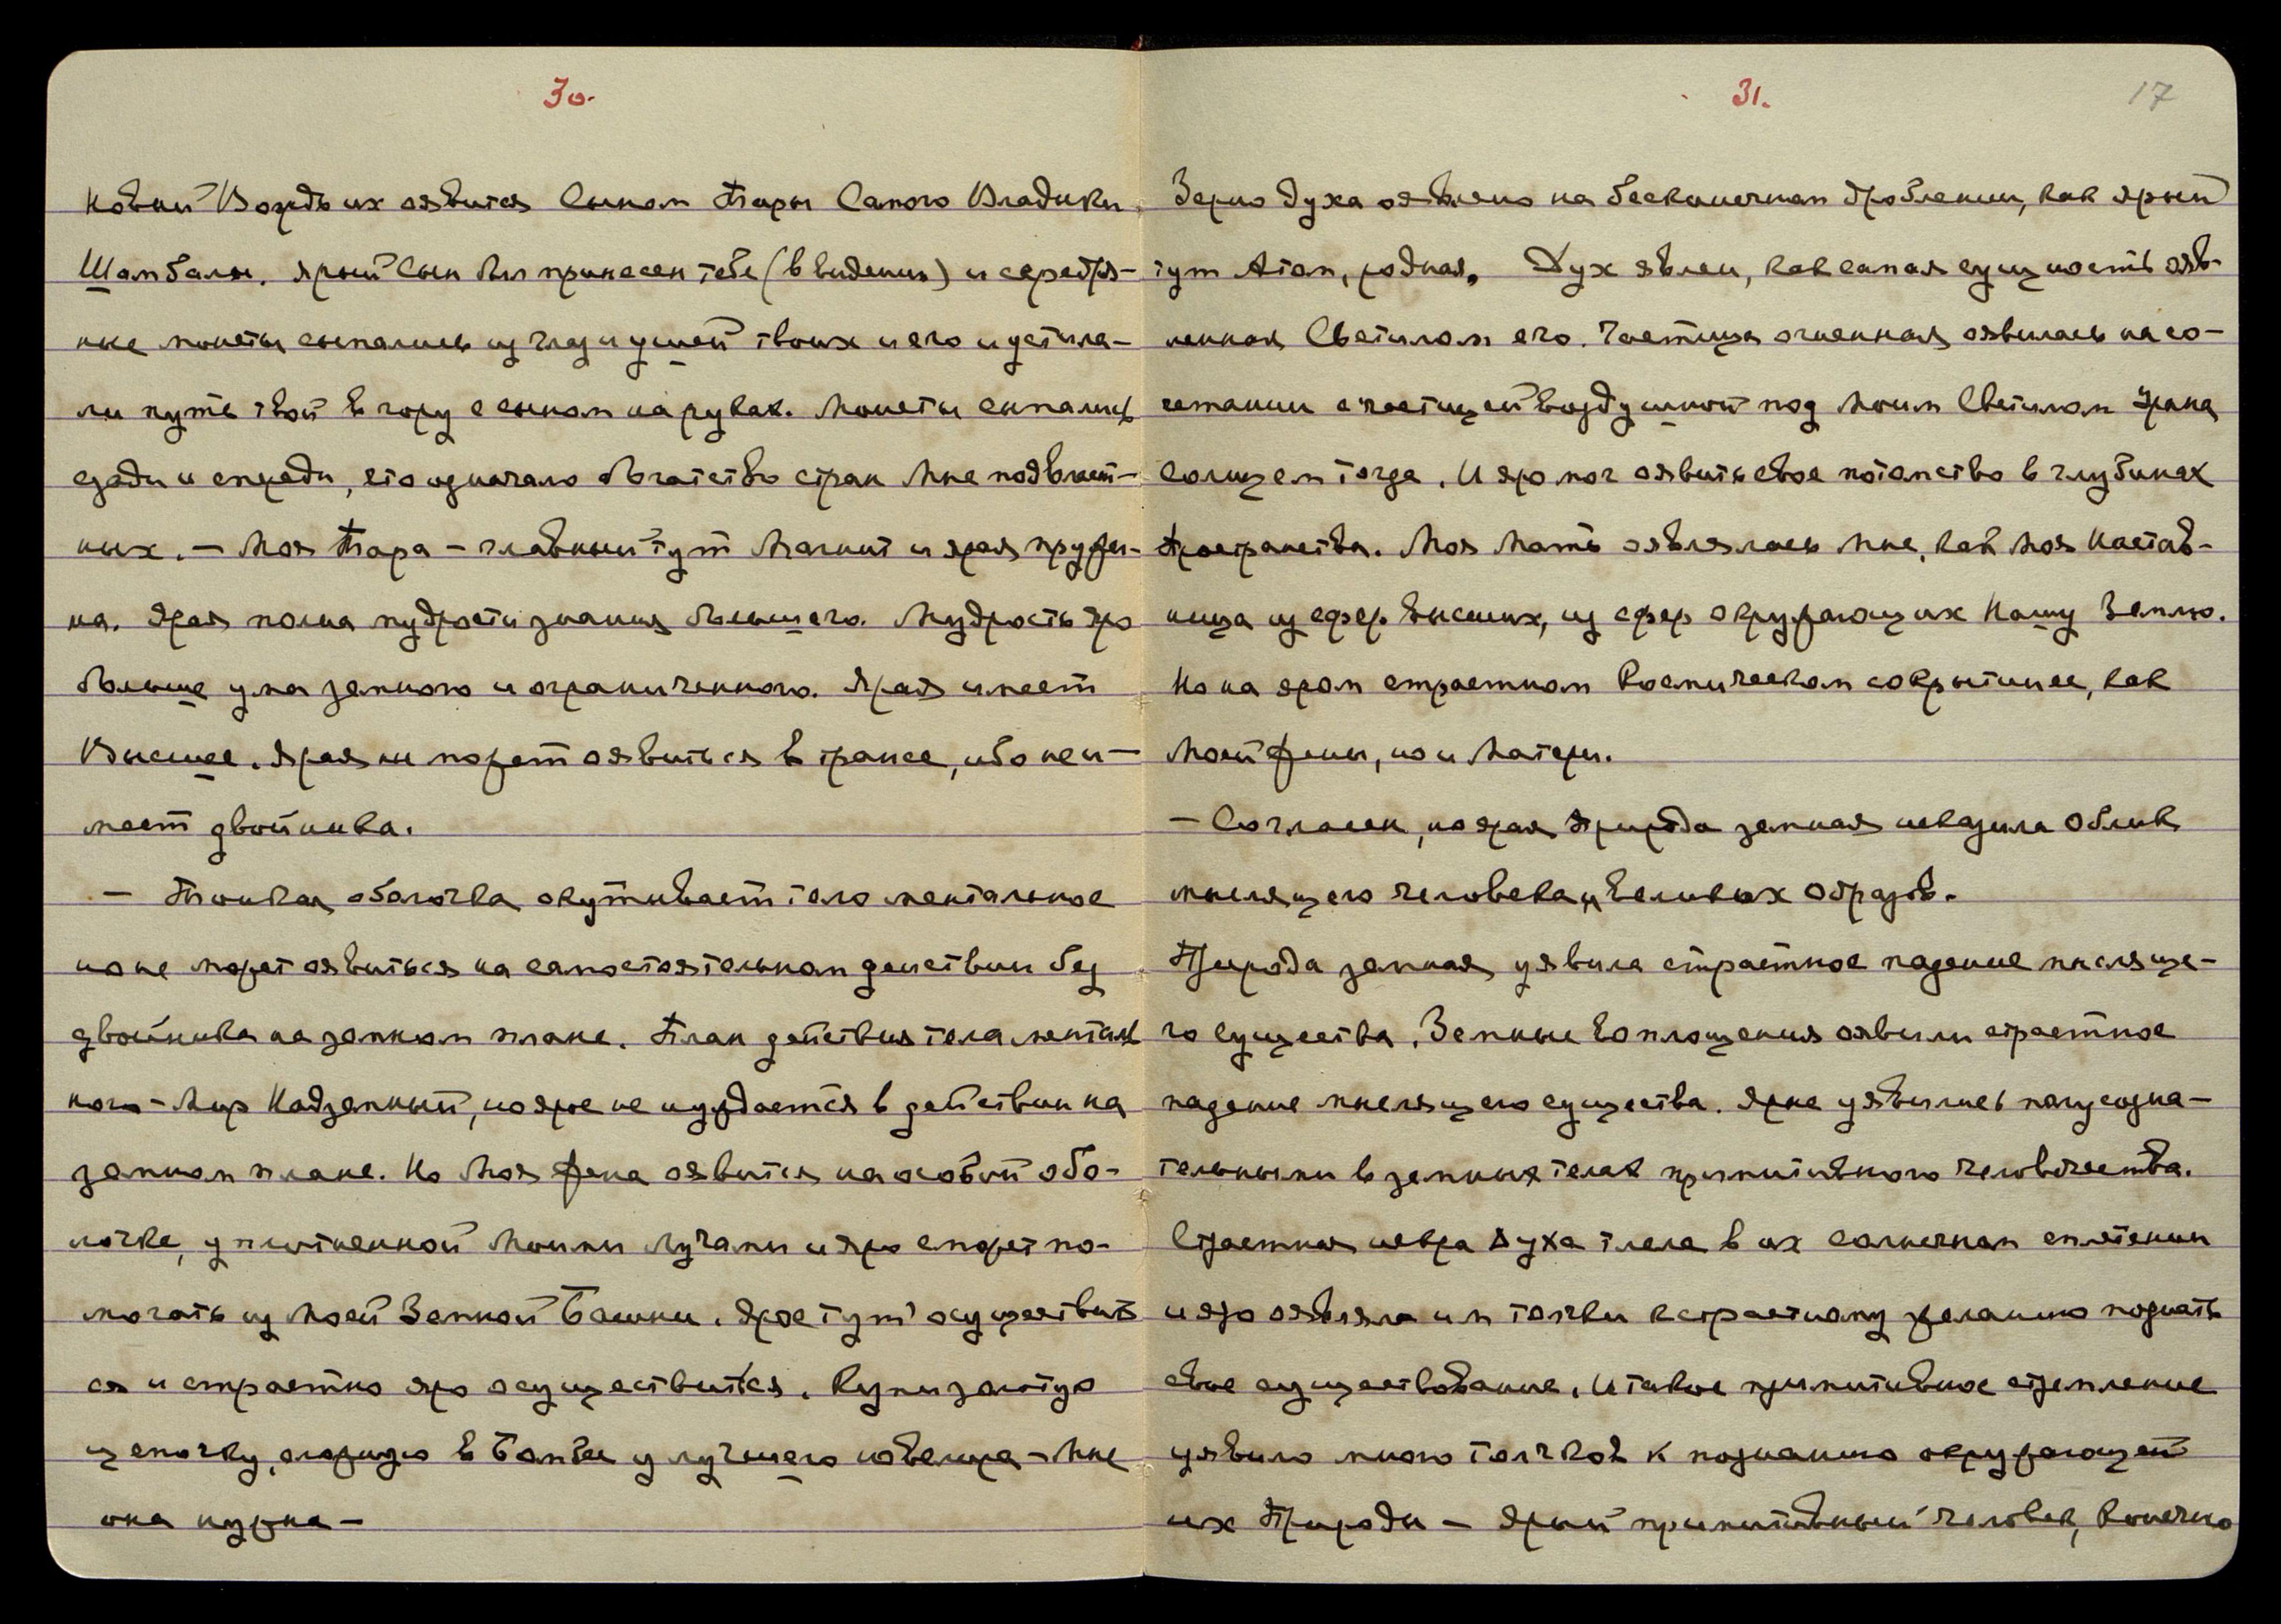 30.
Новый Вождь их оявится Сыном Тары Самого Владыки
Шамбалы. Ярый Сын был принесен тебе (в видении) и серебря-
ные монеты сыпались из глаз и ушей твоих и его и устила-
ли путь твой в гору с сыном на руках. Монеты сыпались
сзади и спереди, это означало богатство стран Мне подвласт-
ных. — Моя Тара — главный тут Магнит и ярая пружи-
на. Ярая полна мудрости знания большего. Мудрость яро
больше ума земного и ограниченного. Ярая имеет
Высшее. Ярая не может оявиться в трансе, ибо не и-
меет двойника.
— Тонкая оболочка окутывает тело ментальное
но не может оявиться на самостоятельном действии без
двойника на земном плане. План действия тела менталь
ного — Мир Надземный, но ярое не нуждается в действии на
земном плане. Но Моя Жена оявится на особой обо-
лочке, уплотненной Моими Лучами и яро сможет по-
могать из Моей Земной Башни. Ярое тут осуществит
ся и страстно яро осуществится. Купи золотую
цепочку, в Бомбее у лучшего ювелира — Мне
она нужна —
31.
17
Зерно духа оявлено на бесконечном дроблении, как ярый
тут Атом, родная. Дух явлен, как самая сущность ояв-
ленная Светилом его. Частица огненная оявилась на со-
четании с частицей воздушной под Моим Светилом Урана
Солнцем тогда. И яро мог оявить свое потомство в глубинах
Пространства. Моя Мать оявлялась Мне, как Моя Настав-
ница из сфер Высших, из сфер окружающих Нашу Землю.
Но на яром страстном Космическом сокрытии ее, как
Моей Жены, но и Матери.
— Согласен, но ярая Природа земная исказила Облик
мыслящего человека и Великих Образов.
Природа земная уявила страстное падение мысляще-
го существа. Земные воплощения оявили страстное
падение мыслящего существа. Ярые уявились полусозна-
тельными в земных телах примитивного человечества.
Страстная искра Духа тлела в их солнечном сплетении
и яро оявляла им толчки к страстному желанию познать
свое существование. И такое примитивное стремление
уявило много толчков к познанию окружающей
их Природы — Ярый примитивный человек, конечно